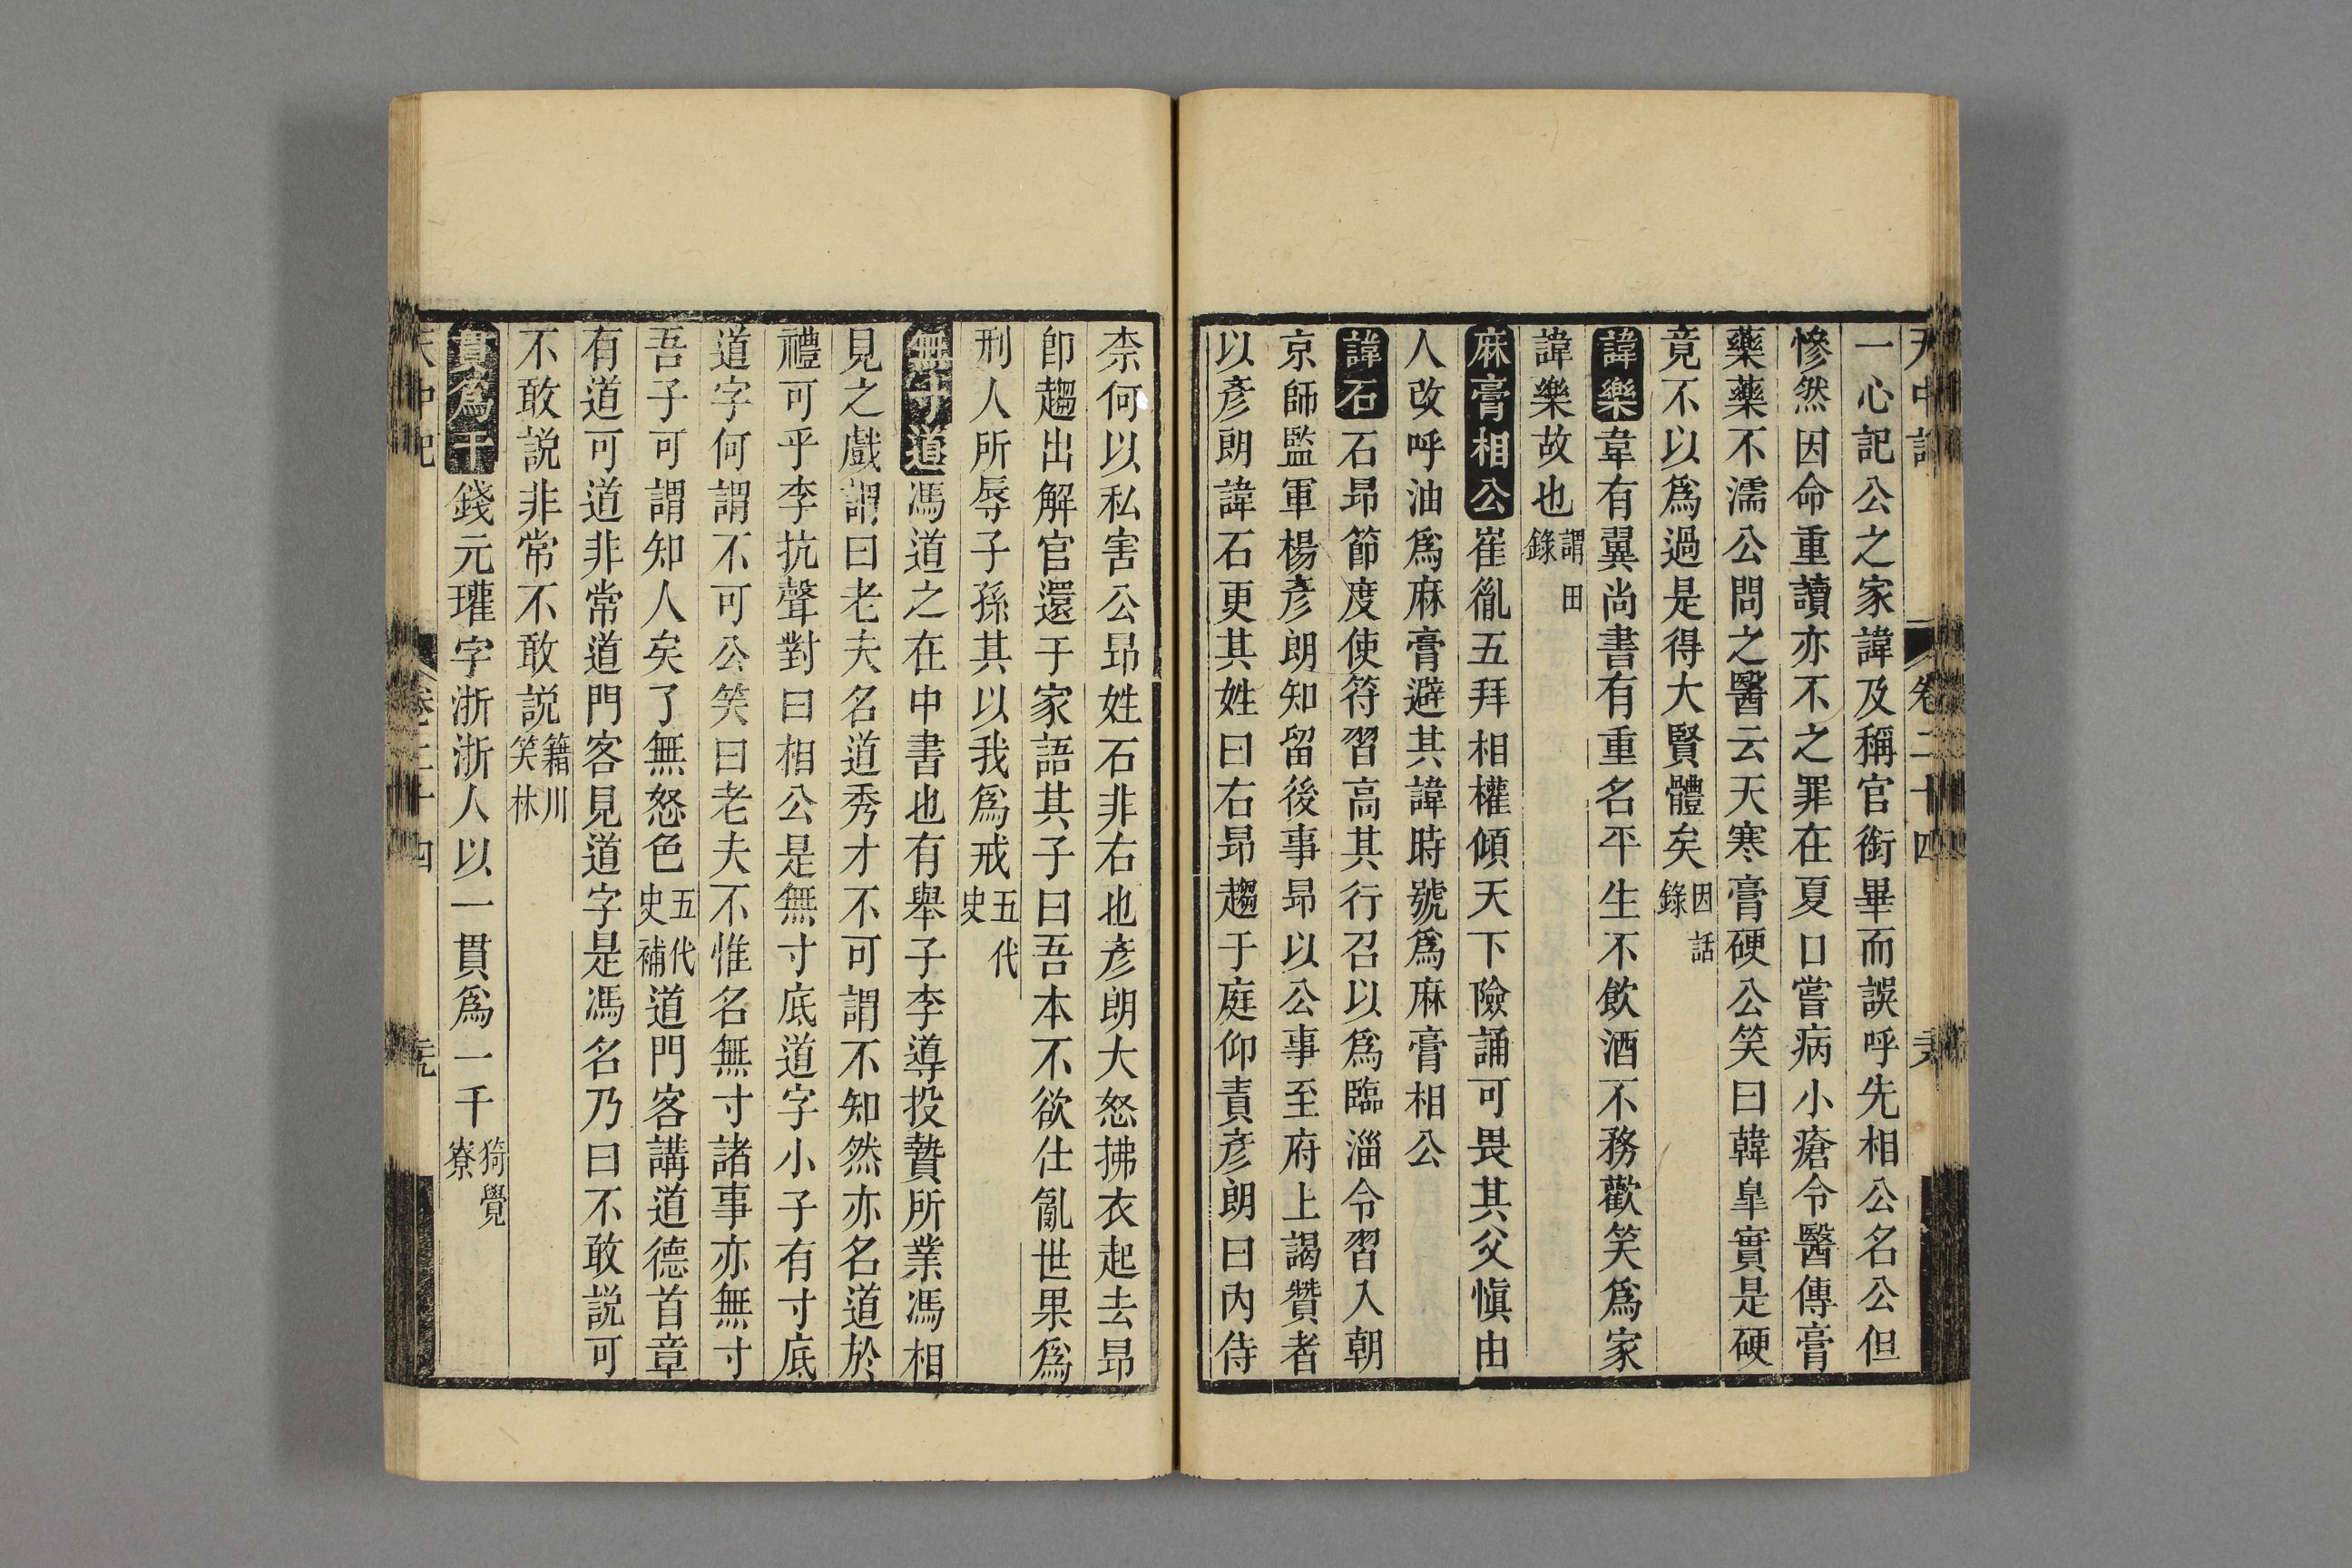 天中記 卷二十四
一心記公之家諱及稱官銜畢而誤呼先相公名公但
慘然因命重讀亦不之罪在夏口嘗病小瘡令醫傳膏
藥藥不濡公問之醫云天寒膏硬公笑曰韓臯實是硬
竟不以爲過是得大賢體矣因話錄
諱樂韋有翼尚書有重名平生不飲酒不務歡笑爲家
諱樂故也謂田錄
麻膏相公崔胤五拜相權傾天下險誦可畏其父愼由
人改呼油爲麻膏避其諱時號爲麻膏相公
諱石石昻節度使符習高其行召以爲臨淄令習入朝
京師監軍楊彥朗知留後事昻以公事至府上謁贊者
以彥朗諱石更其姓曰右昻趨于庭仰責彥朗曰內侍
柰何以私害公昻姓石非右也彥朗大怒拂衣起去昻
卽趨出解官還于家語其子曰吾本不欲仕亂世果爲
刑人所辱子孫其以我爲戒五代史
無字道馮道之在中書也有舉子李導投贄所業馮相
見之戲謂曰老夫名道秀才不可謂不知然亦名道於
禮可乎李抗聲對曰相公是無寸底道字小子有寸底
道字何謂不可公笑曰老夫不惟名無寸諸事亦無寸
吾子可謂知人矣了無怒色五代史補道門客講道德首章
有道可道非常道門客見道字是馮名乃曰不敢説可
不敢説非常不敢説籍川笑林
貫爲千錢元瓘字浙浙人以一貫爲一千猗覺寮
天中記 卷二十四